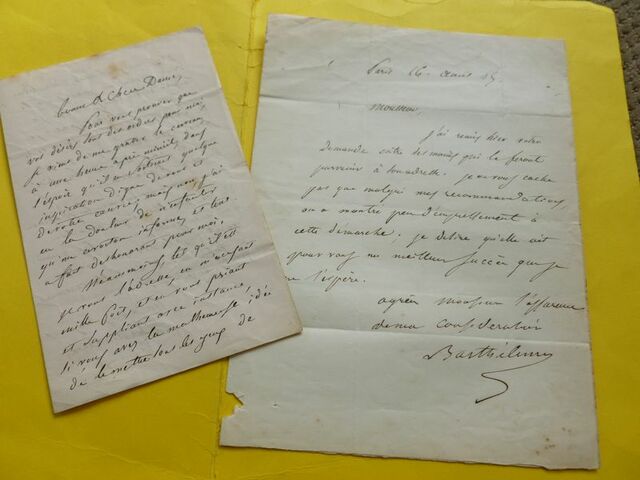 bonne & chère Dame,
Pour vous prouver que
vos désirs sont des ordres pour moi,
je viens de me gratter le cerveau
à une heure après minuit, dans
l'espoir qu'il en sortirait quelque
inspiration digne de vous et
de votre courrier; mais non, j'ai
eu la douleur de n'enfanter
qu'un avorton informe, et tout
à fait deshonorant pour moi.
Néanmoins, tel qu'il est
je vous l'adresse, en m'excusant
mille fois, et en vous priant
et suppliant avec instance,
si vous avez la malheureuse idée
de le mettre sous les yeux de
Paris 16 avril
Monsieur,
J'ai remis hier votre
demande entre des mains qui la feront
parvenir à son adresse. je ne vous cache
pas que malgré mes recommandations
on a montré peu d'empressement à
cette démarche. je désire qu'elle ait
pour vous un meilleur succès que je
ne l'espère.
agréez Monsieur l'assurance
de ma considération
Barthélemy